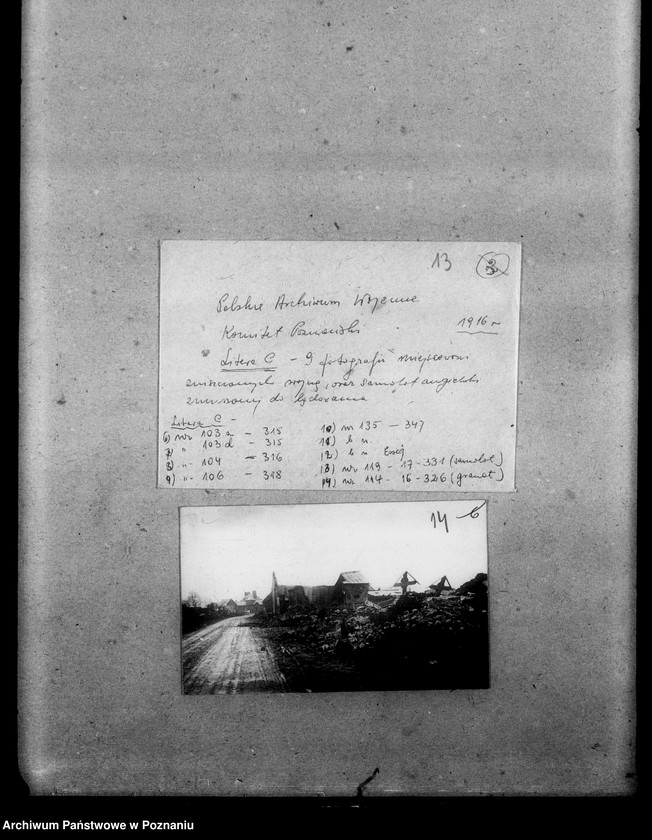 13 3
Polskie Archiwum Wojenne
Komitet Poznański
1916 r
Litera C - 9 fotografii miejscowości
zniszczonych wojną, oraz samolot angielski
zmuszony do lądowania
Litera C -
6) nr 103 a - 315
7) " 103 d - 315
8) " 104 - 316
9) " 106 - 318
10) nr 135 - 347
11) b n.
12) b n
13) nr 119 - 17-331 (samolot)
14) nr 114 - 16-326 (granat)
14 6
Archiwum Państwowe w Poznaniu